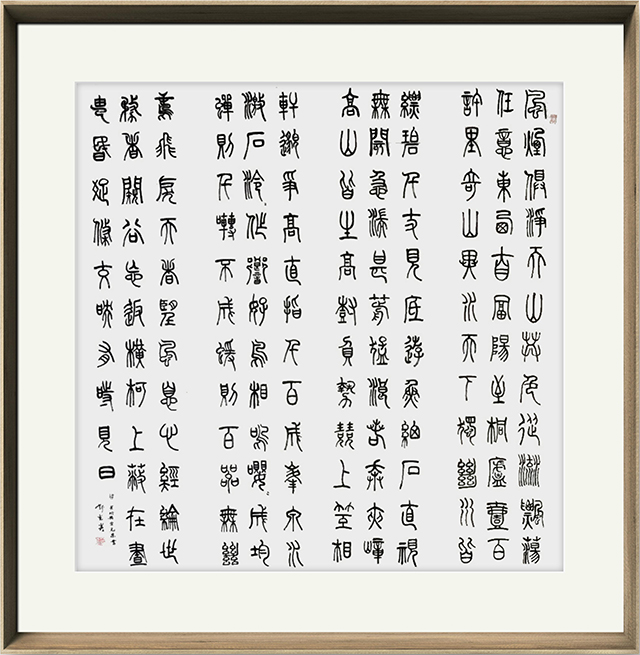 風煙俱淨天山共色從流飄蕩
任意東西自富陽至桐廬壹百
許里奇山異水天下獨絕水皆
縹碧千丈見底游魚細石直視
無閡急湍甚箭猛浪若奔夾嶂
高山皆生高樹負勢競上互相
軒邈爭高直指千百成峯泉水
激石泠〃作響好鳥相鳴嚶〃成均
蟬則千囀不窮猨則百叫無絕
鳶飛戾天者望風息心經綸世
務者闚谷忘返橫柯上蔽在晝
猶昏疏條交映有時見日